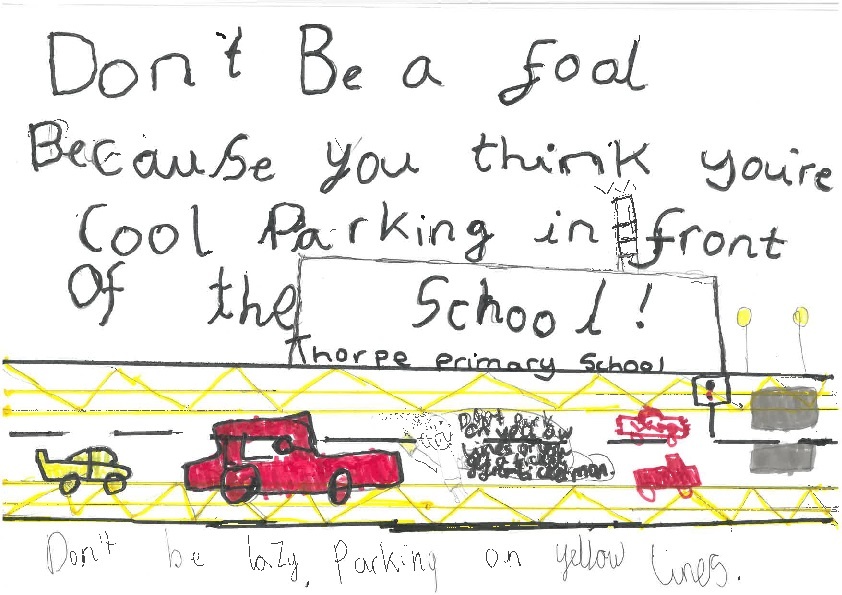 Don't Be a fool
Because you think you're
Cool Parking in front
Of the School!
Thorpe primary School
Don't Park
on yellow
lines or
Don't be lazy, Parking on yellow lines.